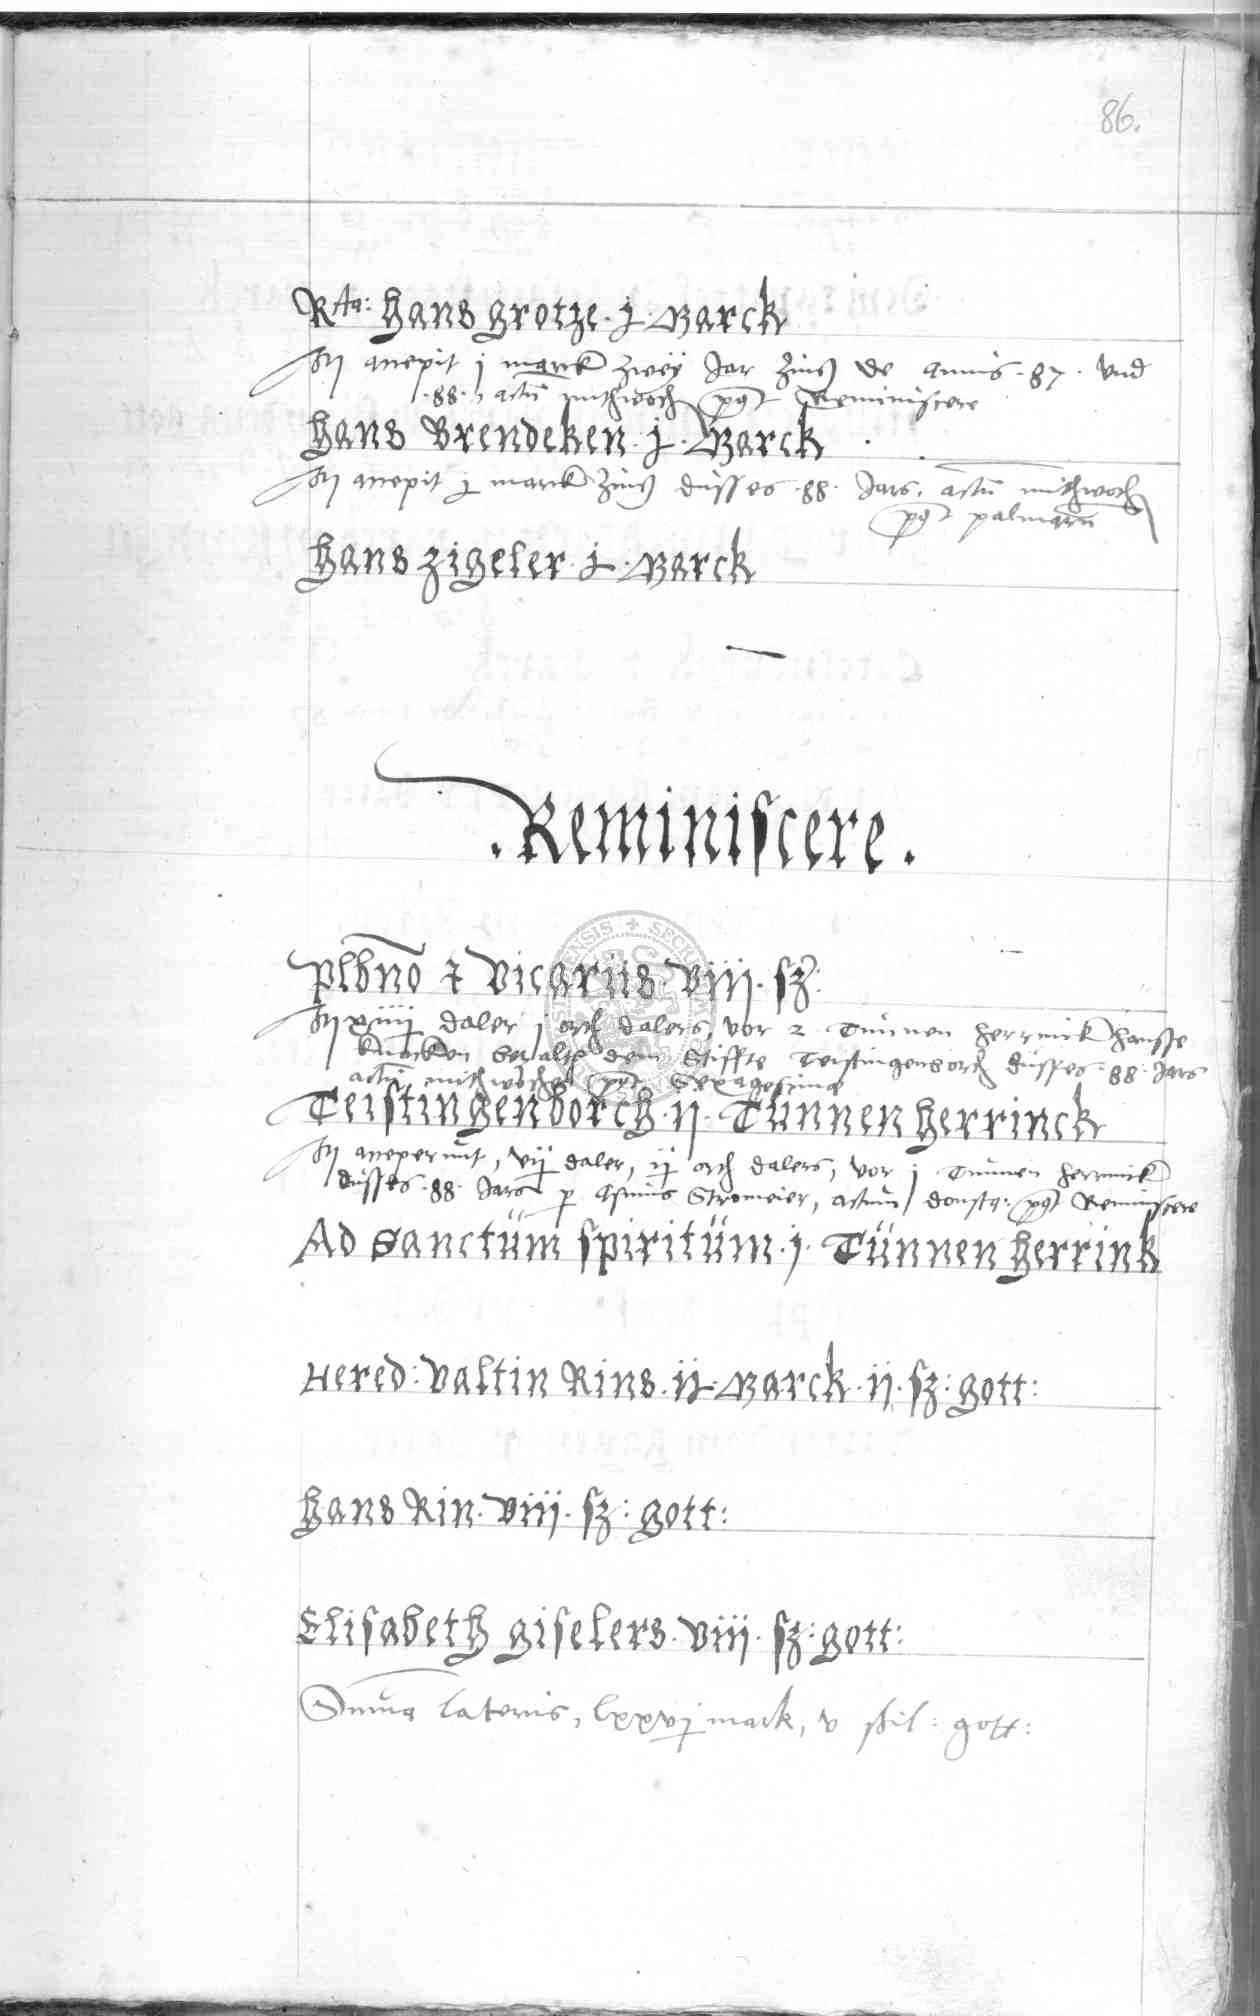 86.
Rta: Hans Grotze · j · Marck
accepit j marck zwey Jar Zins de annis · 87 · vnd
· 88 · actu mithwoch post Reminiscere
Hans Brendeken · j · Marck
accepit j marck Zins disses · 88 · Jars, actu mithwoch
post palmaru
Hans Zigeler · j · Marck
· Reminiscere ·
Plbno & Vicariis · viii · sz:
xiiij daler j orth dalers, vor 2 Tunnen herrinck Hansse
knacken dem Stiffte Teistingenborch disses · 88 · Jars
actu mithwochen post Sexagesima
Teistingenborch · ij · Tünnen herrinck
acceperunt, vij daler, ij orth dalers, vor j Tunnen herrinck
disses · 88 · Jars p Asmus Stromeier, actum donstag: post Reminiscere
Ad Sanctüm spiritüm · j · Tünnen herrink
Hered: Valtin Rins · ij · Marck · ij · sz: gott:
Hans Rin · viii · sz: gott:
Elisabeth Giselers · viii · sz: gott:
Suma lateris, lxxvj mark, v shil: gott: